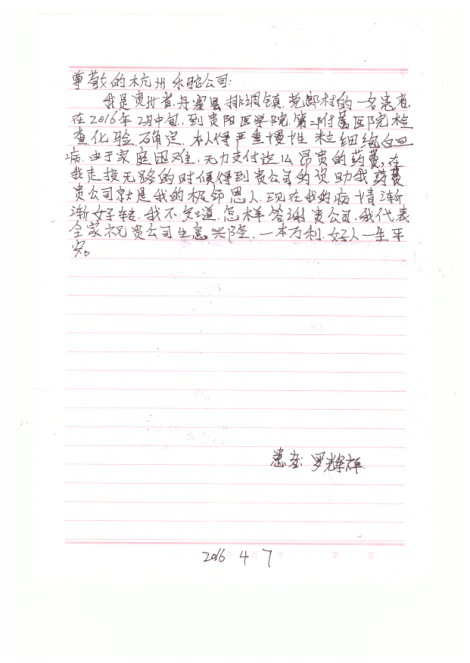 尊敬的杭州乐玲公司:
我是贵州省丹寨县排调镇党郎村的一名患者
在2016年2月中旬,到贵阳医学院第二附属医院检
查化验确定,本人得严重慢性粒细胞白血
病,由于家庭困难,无力支付这么昂贵的药费,在
我走投无路的时候得到贵公司的资助我药费
贵公司就是我的极命恩人,现在我的病情渐
渐好转,我不知道,怎样答谢贵公司,我代表
全家祝贵公司生意兴隆,一本万利,好人一生平
安。
患者: 罗辉祥
2016 4 7